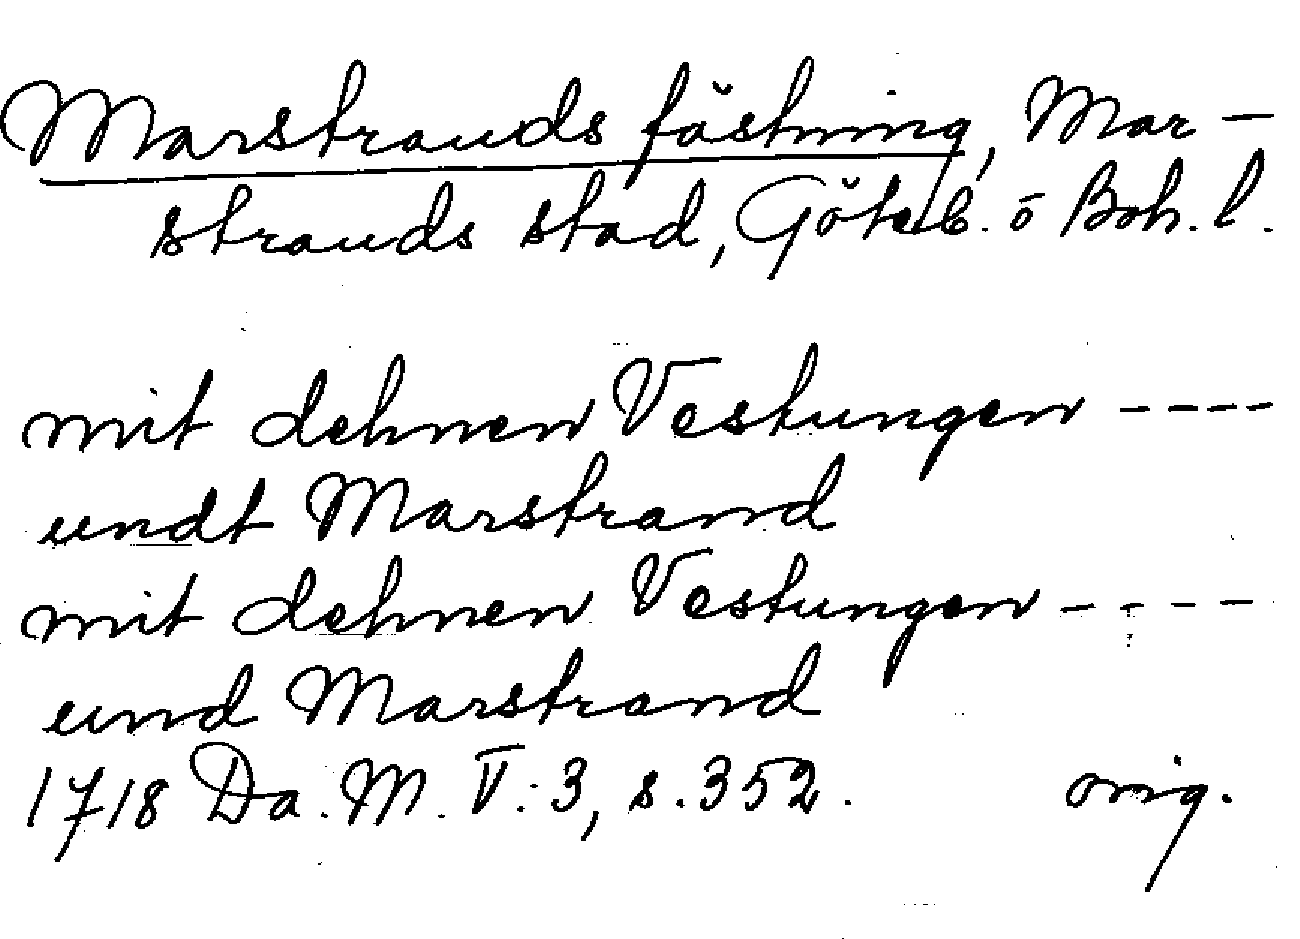 Marstrands fästning, Mar-
strands stad, Göteb. o Boh. l.
mit dehnen Vestungen ----
undt Marstrand
mit dehnen Vestungen ----
und Marstrand
1718 Da. M. V: 3, s. 352. orig.